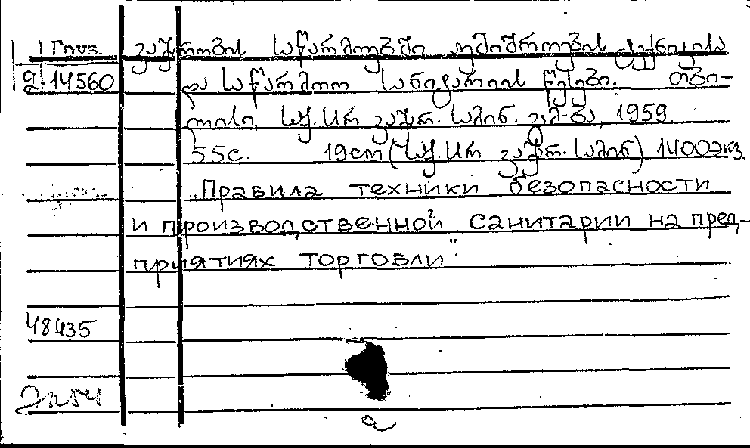 1 Груз.
2 14560
ვაჭრობის საწარმოებში უშიშროების ტექნიკისა
და საწარმოო სანიტარიის წესები. თბი-
ლისი, სქ. სსრ ვაჭრ. სამინ. გ-მ-ბა, 1959.
55с. 19см (სქ. სსრ ვაჭრ. სამინ) 1400экз
„Правила техники безопасности
и производственной санитарии на пред-
приятиях торговли"
48435